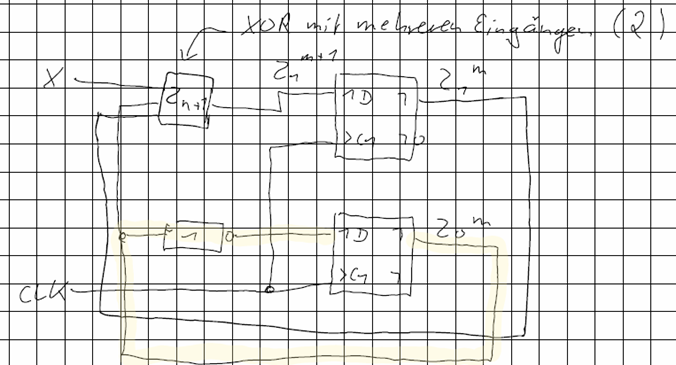 XOR mit mehreren Eingängen (2)
X
2n+1
z₁ᵐ⁺¹
1D ┐
z₁ᵐ
>C1 ┐
1
1D ┐
z₀ᵐ
>C1 ┐
CLK